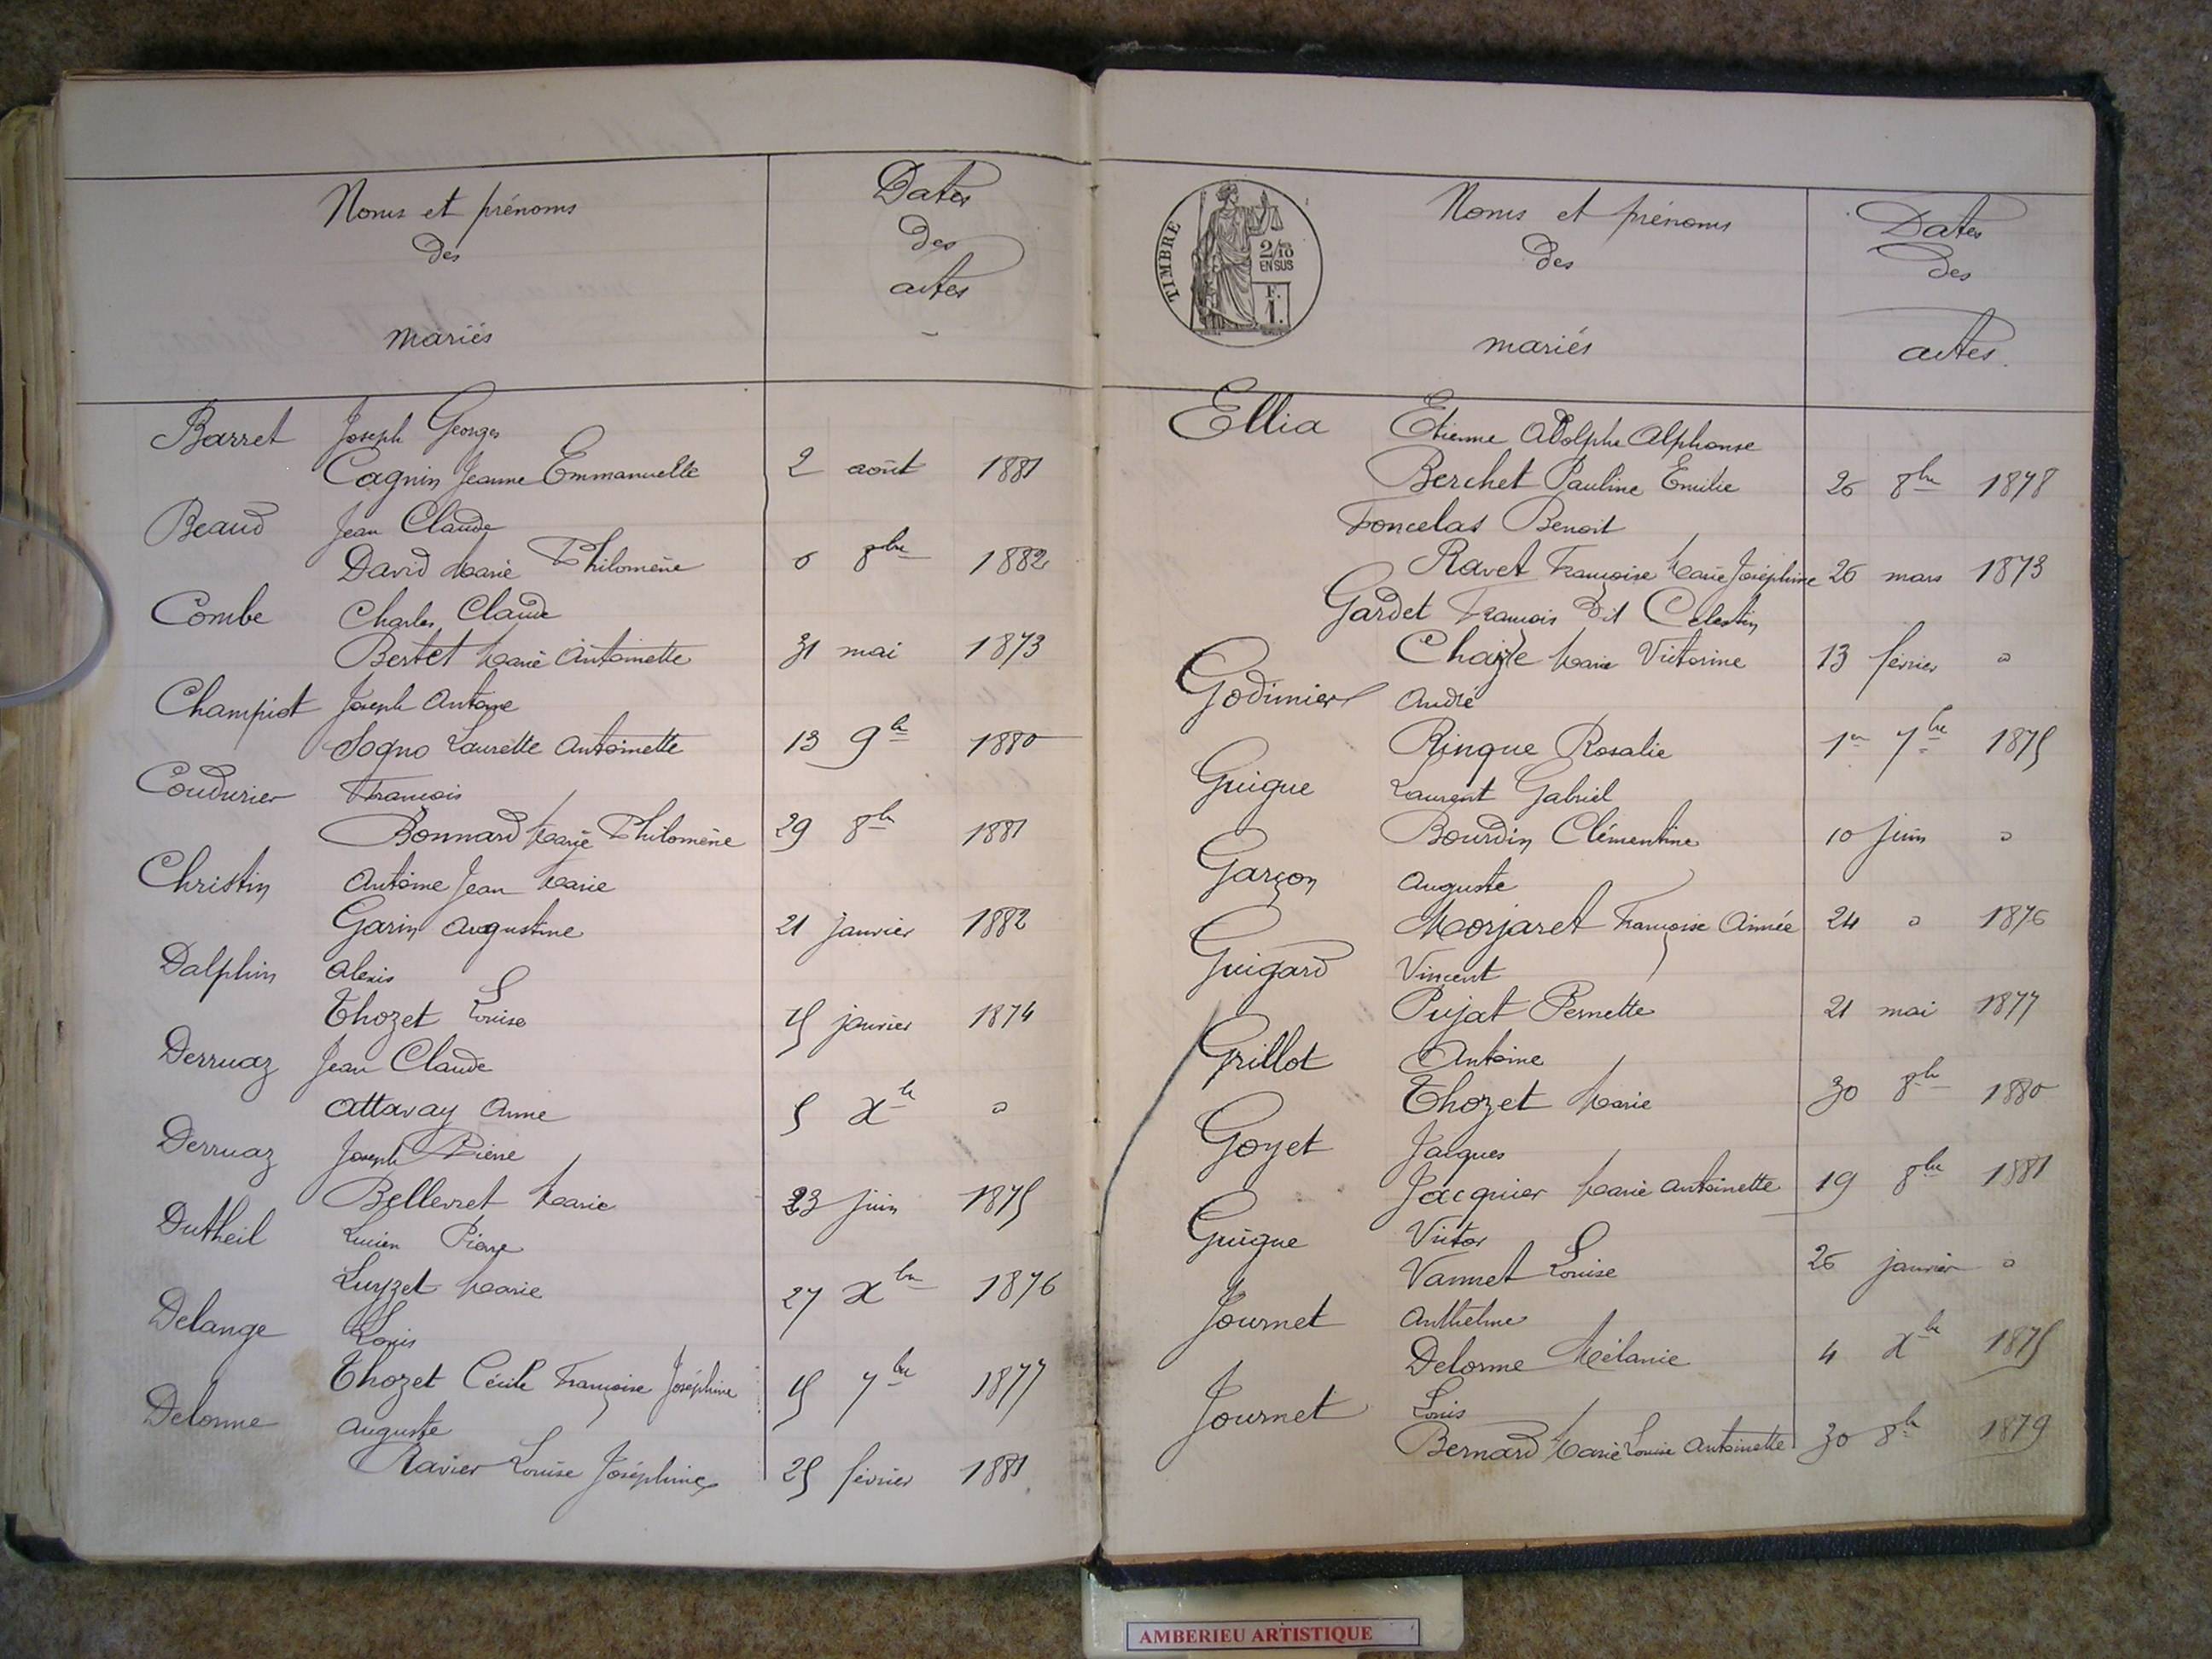 Noms et prénoms
des
mariés
Dates
des
actes
Barret Joseph Georges
Cagnin Jeanne Emmanuelle 2 août 1881
Beaud Jean Claude
David Marie Philomène 6 8bre 1882
Combe Charles Claude
Bertet Marie Antoinette 31 mai 1873
Champiot Joseph Antoine
Sogno Laurette Antoinette 13 9bre 1880
Coudurier François
Bonnard Marie Philomène 29 8bre 1881
Christin Antoine Jean Marie
Garin Augustine 21 janvier 1882
Dalphin Alexis
Thozet Louise 15 janvier 1874
Derruaz Jean Claude
Attavay Anne 5 Xbre d
Derruaz Joseph Pierre
Bellevret Marie 23 juin 1875
Dutheil Lucien Pierre
Luyzet Marie 27 Xbre 1876
Delange Louis
Thozet Cécile Françoise Joséphine 15 7bre 1877
Delorme Auguste
Ravier Louise Joséphine 25 février 1881
TIMBRE
2/10
EN SUS
F.
1.
Noms et prénoms
des
mariés
Dates
des
actes.
Ellia Etienne Adolphe Alphonse
Berchet Pauline Emilie 26 8bre 1878
Foncelas Benoit
Ravet Françoise Marie Joséphine 26 mars 1873
Gardet François dit Celestin
Marie Victorine 13 février d
Godimier André
Rinque Rosalie 1er 7bre 1875
Guigue Laurent Gabriel
Bourdin Clémentine 10 juin d
Garçon Auguste
Morjaret Françoise Aimée 24 d 1876
Guigard Vincent
Pujat Pernette 21 mai 1877
Grillot Antoine
Thozet Marie 30 8bre 1880
Goyet Jacques
Jacquier Marie Antoinette 19 8bre 1881
Guigue Victor
Vannet Louise 26 janvier d
Journet Anthelme
Delorme Mélanie 4 Xbre 1875
Journet Louis
Bernard Marie Louise Antoinette 30 8bre 1879
AMBERIEU ARTISTIQUE